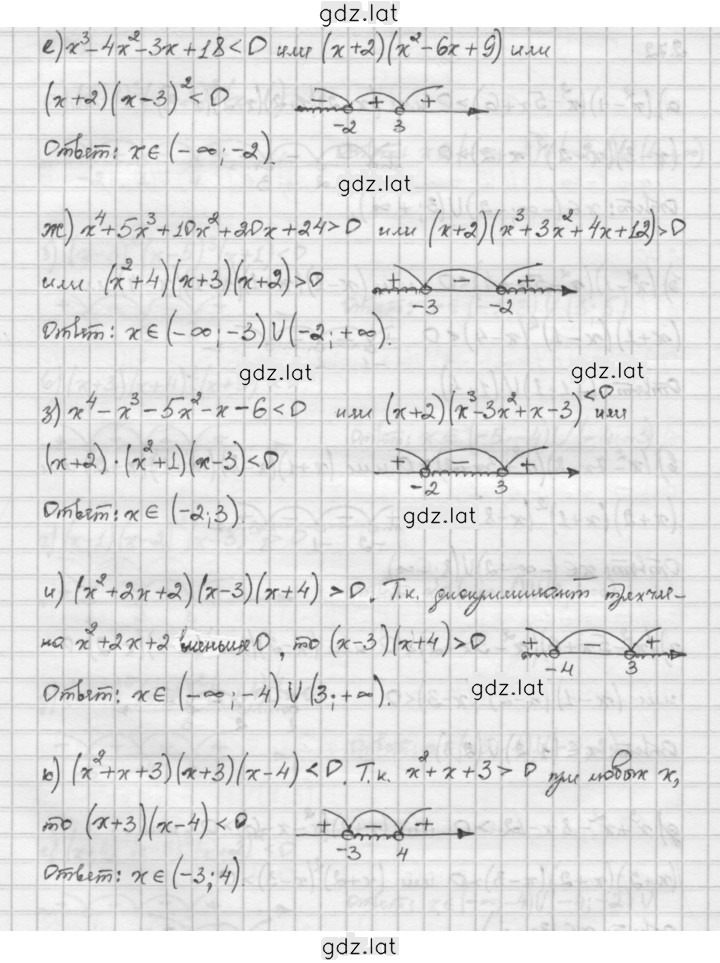 gdz.lat
е) x³-4x²-3x+18<0 или (x+2)(x²-6x+9) или
(x+2)(x-3)²<0 - + + -2 3
Ответ: x∈(-∞;-2).
gdz.lat
ж) x⁴+5x³+10x²+20x+24>0 или (x+2)(x³+3x²+4x+12)>0
или (x²+4)(x+3)(x+2)>0 + - + -3 -2
Ответ: x∈(-∞;-3)∪(-2;+∞).
gdz.lat gdz.lat
з) x⁴-x³-5x²-x-6<0 или (x+2)(x³-3x²+x-3)<0 или
(x+2)·(x²+1)(x-3)<0 + - + -2 3
Ответ: x∈(-2;3).
gdz.lat
и) (x²+2x+2)(x-3)(x+4)>0. Т.к. дискриминант трехчле-
на x²+2x+2 меньше 0, то (x-3)(x+4)>0 + - + -4 3
Ответ: x∈(-∞;-4)∪(3;+∞).
gdz.lat
к) (x²+x+3)(x+3)(x-4)<0. Т.к. x²+x+3>0 при любых x,
то (x+3)(x-4)<0 + - + -3 4
Ответ: x∈(-3;4).
gdz.lat